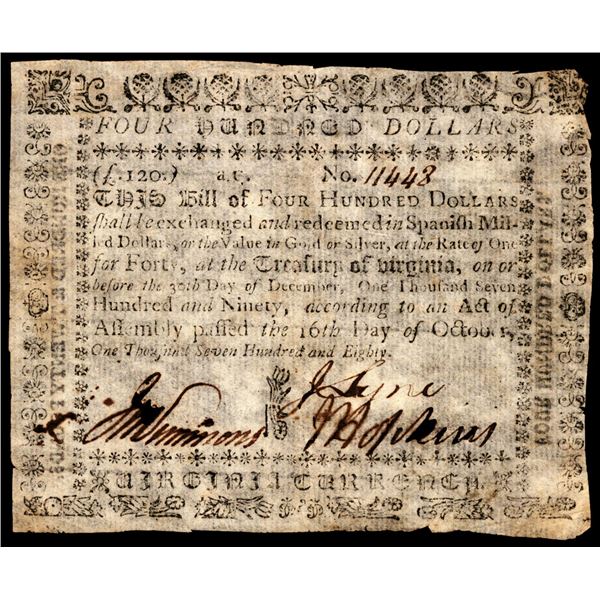 FOUR HUNDRED DOLLARS
(£.120.) a.c. No. 11448
THIS Bill of FOUR HUNDRED DOLLARS
shall be exchanged and redeemed in Spanish Mil-
led Dollars, or the Value in Gold or Silver, at the Rate of One
for Forty, at the Treasury of Virginia, on or
before the 30th Day of December, One Thousand Seven
Hundred and Ninety, according to an Act of
Assembly passed the 16th Day of October,
One Thousand Seven Hundred and Eighty.
J Lyne
JM Simmons J Hopkins
VIRGINIA CURRENCY.
FOUR HUNDRED DOLLARS